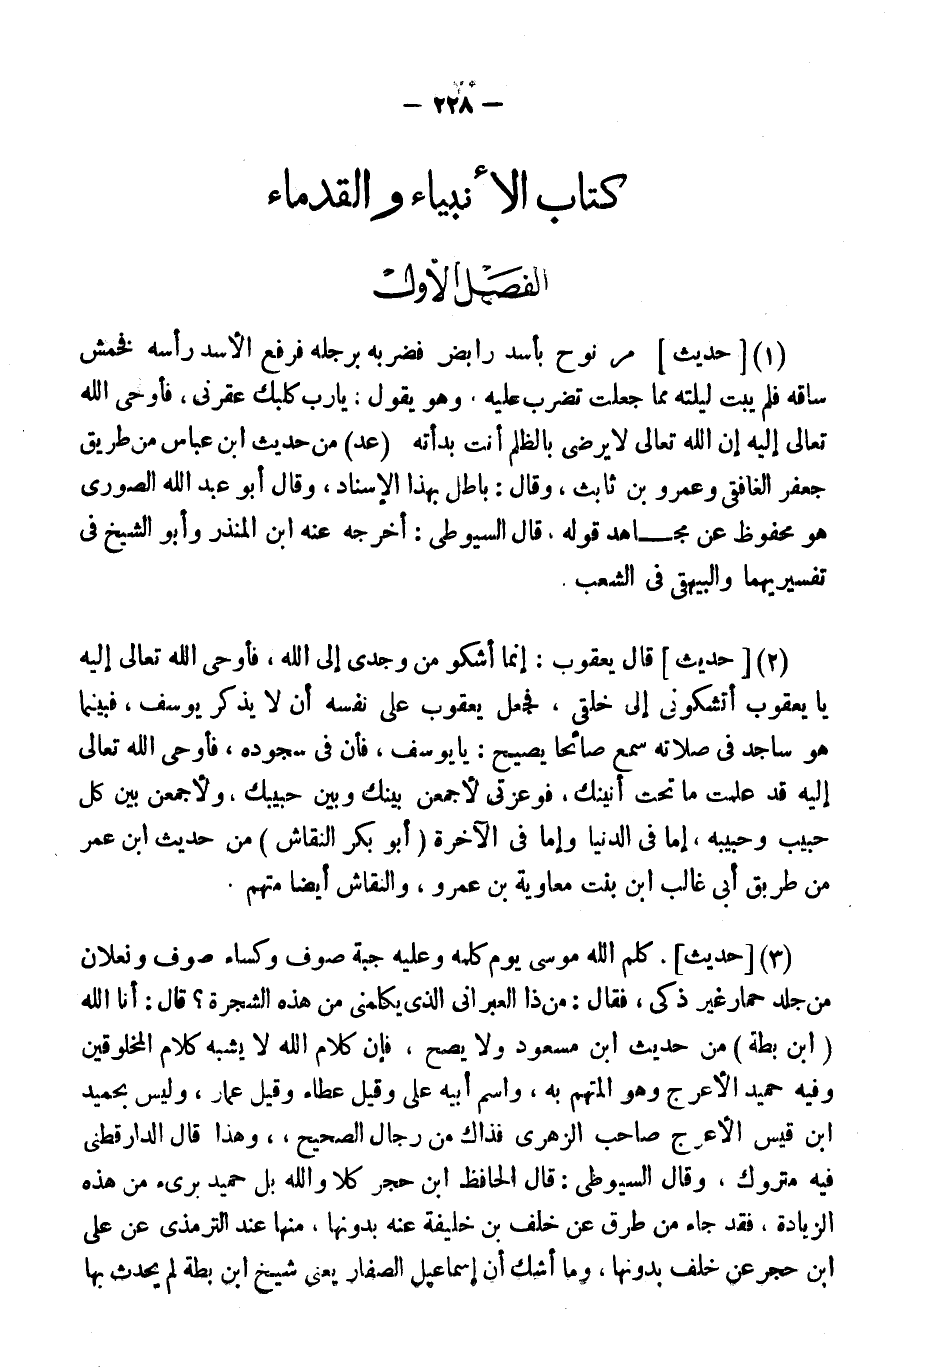 — ٢٢٨ —
كتاب الأنبياء والقدماء
الفصل الأول
(١) [ حديث ] مر نوح بأسد رابض فضربه برجله فرفع الأسد رأسه فخمش
ساقه فلم يبت ليلته مما جعلت تضرب عليه . وهو يقول : يارب كلبك عقرنى ، فأوحى الله
تعالى إليه إن الله تعالى لايرضى بالظلم أنت بدأته (عد) من حديث ابن عباس من طريق
جعفر الغافقى وعمرو بن ثابت ، وقال : باطل بهذا الإسناد ، وقال أبو عبد الله الصورى
هو محفوظ عن مجاهد قوله . قال السيوطى : أخرجه عنه ابن المنذر وأبو الشيخ فى
تفسيريهما والبيهقى فى الشعب .
(٢) [ حديث ] قال يعقوب : إنما أشكو من وجدى إلى الله ، فأوحى الله تعالى إليه
يا يعقوب أتشكونى إلى خلقى ، فجعل يعقوب على نفسه أن لا يذكر يوسف ، فبينما
هو ساجد فى صلاته سمع صائحا يصيح : يايوسف ، فأن فى سجوده ، فأوحى الله تعالى
إليه قد علمت ما تحت أنينك ، فوعزتى لأجمعن بينك وبين حبيبك ، ولأجمعن بين كل
حبيب وحبيبه ، إما فى الدنيا وإما فى الآخرة ( أبو بكر النقاش ) من حديث ابن عمر
من طريق أبى غالب ابن بنت معاوية بن عمرو ، والنقاش أيضا متهم .
(٣) [حديث] . كلم الله موسى يوم كلمه وعليه جبة صوف وكساء صوف ونعلان
من جلد حمار غير ذكى ، فقال : من ذا العبرانى الذى يكلمنى من هذه الشجرة ؟ قال : أنا الله
( ابن بطة ) من حديث ابن مسعود ولا يصح ، فإن كلام الله لا يشبه كلام المخلوقين
وفيه حميد الأعرج وهو المتهم به ، واسم أبيه على وقيل عطاء وقيل عمار ، وليس بحميد
ابن قيس الأعرج صاحب الزهرى فذاك من رجال الصحيح ، ، وهذا قال الدارقطنى
فيه متروك ، وقال السيوطى : قال الحافظ ابن حجر كلا والله بل حميد برىء من هذه
الزيادة ، فقد جاء من طرق عن خلف بن خليفة عنه بدونها ، منها عند الترمذى عن على
ابن حجر عن خلف بدونها ، وما أشك أن إسماعيل الصفار يعنى شيخ ابن بطة لم يحدث بها